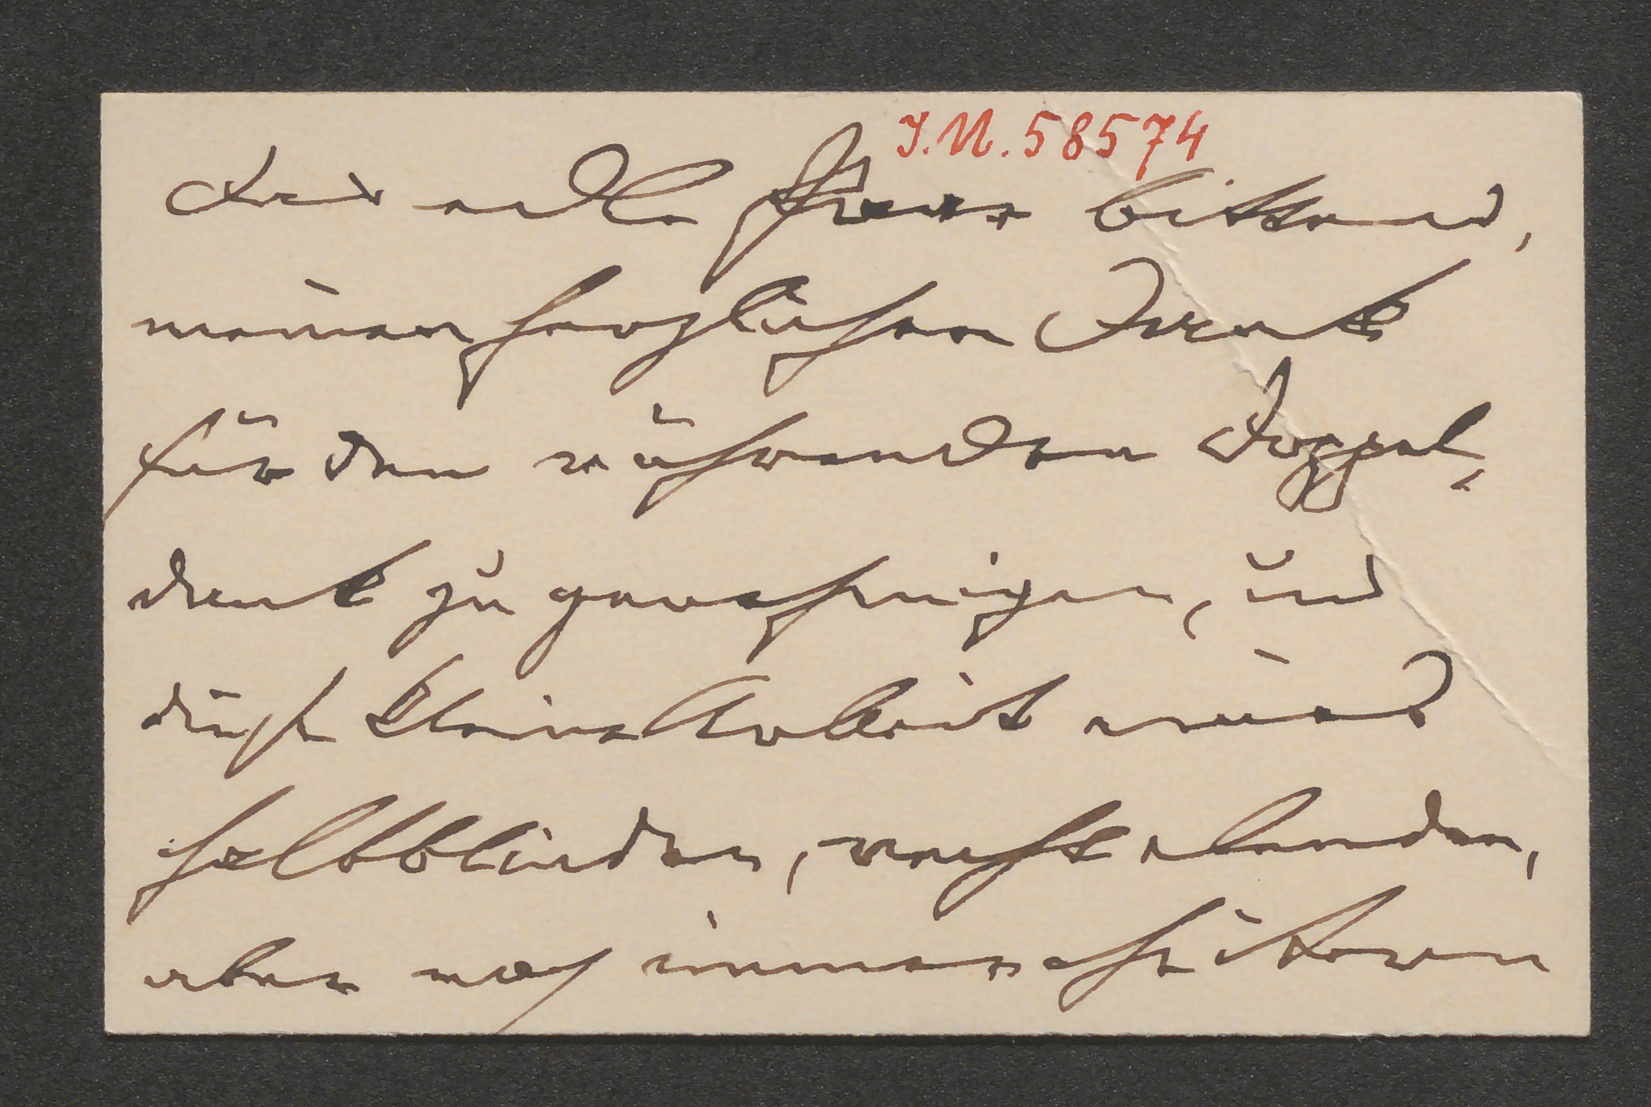 I.N. 58574
das edle Paar bittend,
meinen herzlichen Dank
für den rührenden Doppel-
dank zu genehmigen, und
diese kleine Arbeit eines
halbblinden, recht elenden,
aber noch immer heitern